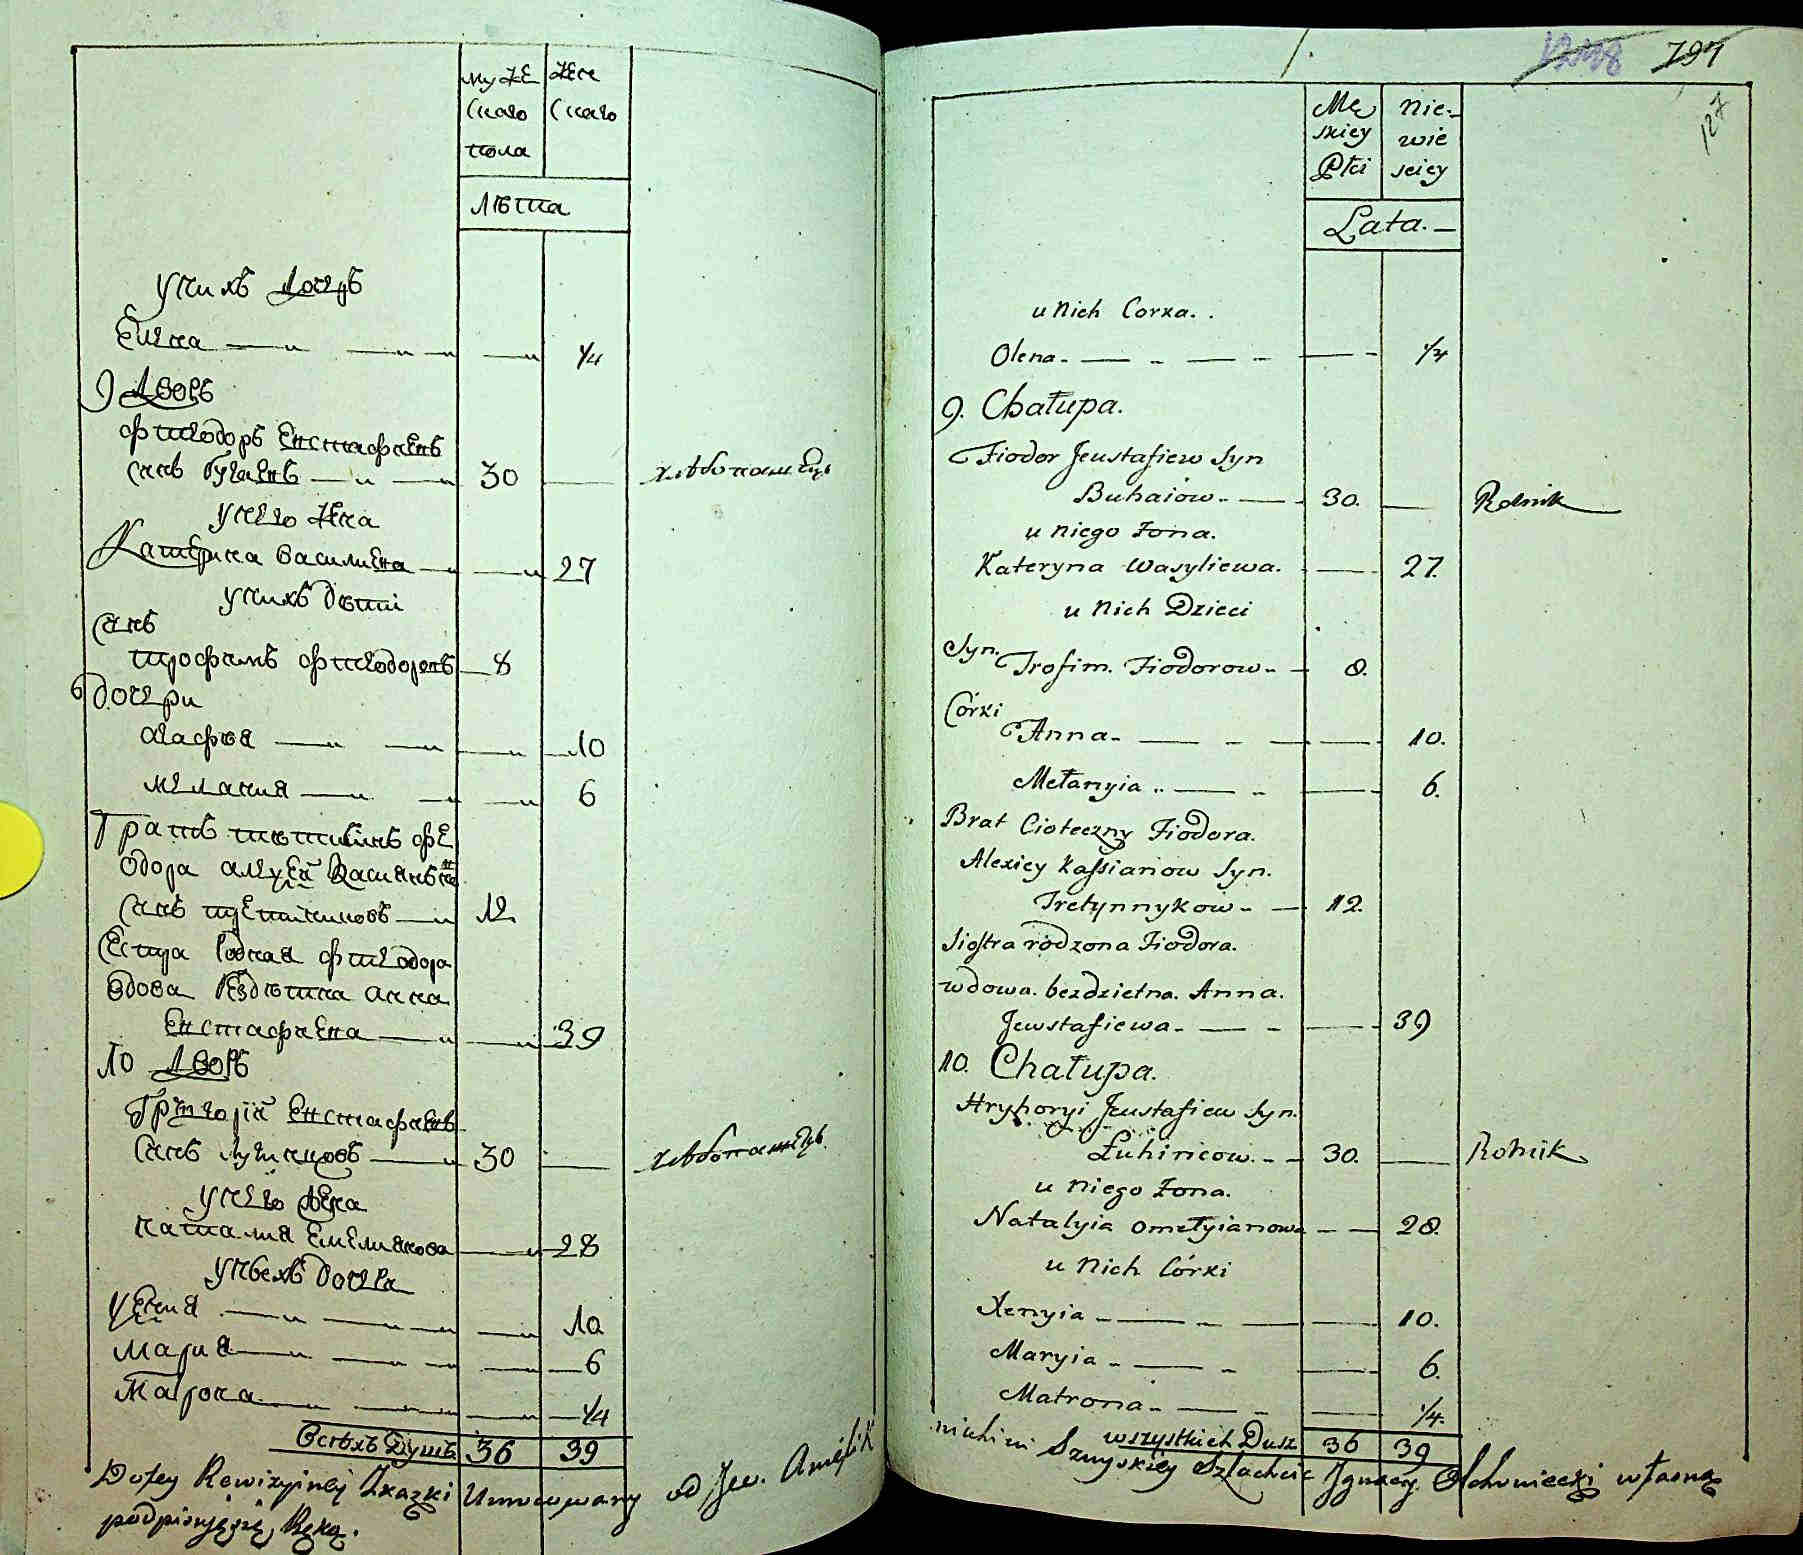 муже ские
скаго скаго
пола
лѣта
у них дочь
Елена — — — 1/4
9 Дворъ
Фтеодоръ Евстафиевъ
синъ Бугаевъ — — 30 — хлѣбопашецъ
у него жена
Катерина Василиева — — 27
у нихъ дѣти
синъ
Трофимъ Фтеодоровъ — 8
дочери
Агафия — — — 10
Мелания — — — 6
Братъ тютчинъ Фе
одора Алексей Касиановъ
синъ — 12
Сестра родная Фтеодора
вдова бездѣтна Анна
Евстафиева — — 39
10 Дворъ
Григорій Евстафиевъ
синъ — 30 — хлѣбопашецъ
у него жена
Наталия Емелианова — 28
у нихъ дочери
Ксения — — — — 10
Мария — — — — 6
Матрона — — — — 1/4
Всѣхъ Душъ 36 39
Do tey Rewizyiney Skazki Umocowany od Jw.
podpisuję się Ręką.
794
127
Mę Nie-
skiey wie
Płci sciey
Lata. —
u Nich Corka. .
Olena - — - — - — - 1/4
9. Chałupa.
Fiodor Jeustafiew Syn
Buhaiow - — - 30. — Rolnik
u niego Żona.
Kateryna Wasyliewa. - — 27.
u Nich Dzieci
Syn.
Trofim. Fiodorow - - 8.
Córki
Anna - — - — - — - 10.
Mełanyia - — - — - 6.
Brat Cioteczny Fiodora.
Alexiey Kassianow Syn.
Tretynnykow - — 12.
Siostra rodzona Fiodora.
wdowa. bezdzietna. Anna.
Jewstafiewa - — - — - 39
10. Chałupa.
Hryhoryi Jeustafiew Syn.
Łuhincow. - - 30. — Rolnik
u niego Żona.
Natalyia Omelyianowa — — 28.
u Nich Córki
Xenyia - — - — — - 10.
Maryia - — - — - 6.
Matrona - — - — 1/4.
wszystkich Dusz 36 39
Szlachcic Ignacy własną